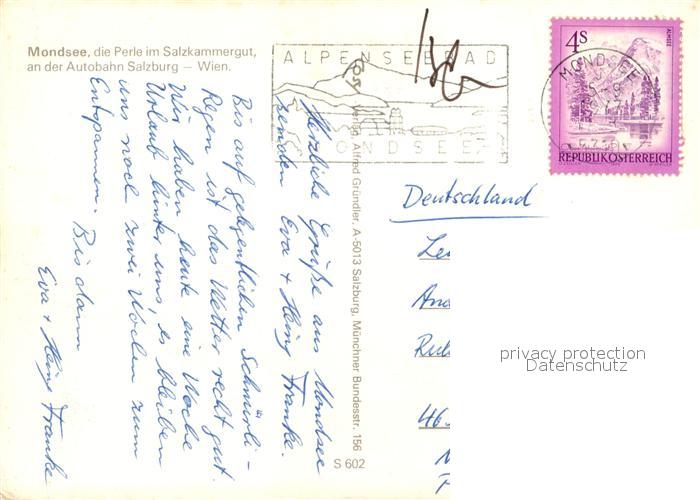 Mondsee, die Perle im Salzkammergut,
an der Autobahn Salzburg – Wien.
ALPENSEEBAD
MONDSEE
4S
ALMSEE
MONDSEE
REPUBLIK ÖSTERREICH
Verlag Alfred Gründler, A-5013 Salzburg, Münchner Bundesstr. 156
S 602
Herzliche Grüße aus Mondsee
senden Eva + Heinz Franke.
Bis auf gelegentlichen Schnürli-
Regen ist das Wetter recht gut.
Wir haben heute eine Woche
Urlaub hinter uns, es bleiben
uns noch zwei Wochen zum
Entspannen. Bis dann
Eva + Heinz Franke
Deutschland
46
privacy protection
Datenschutz